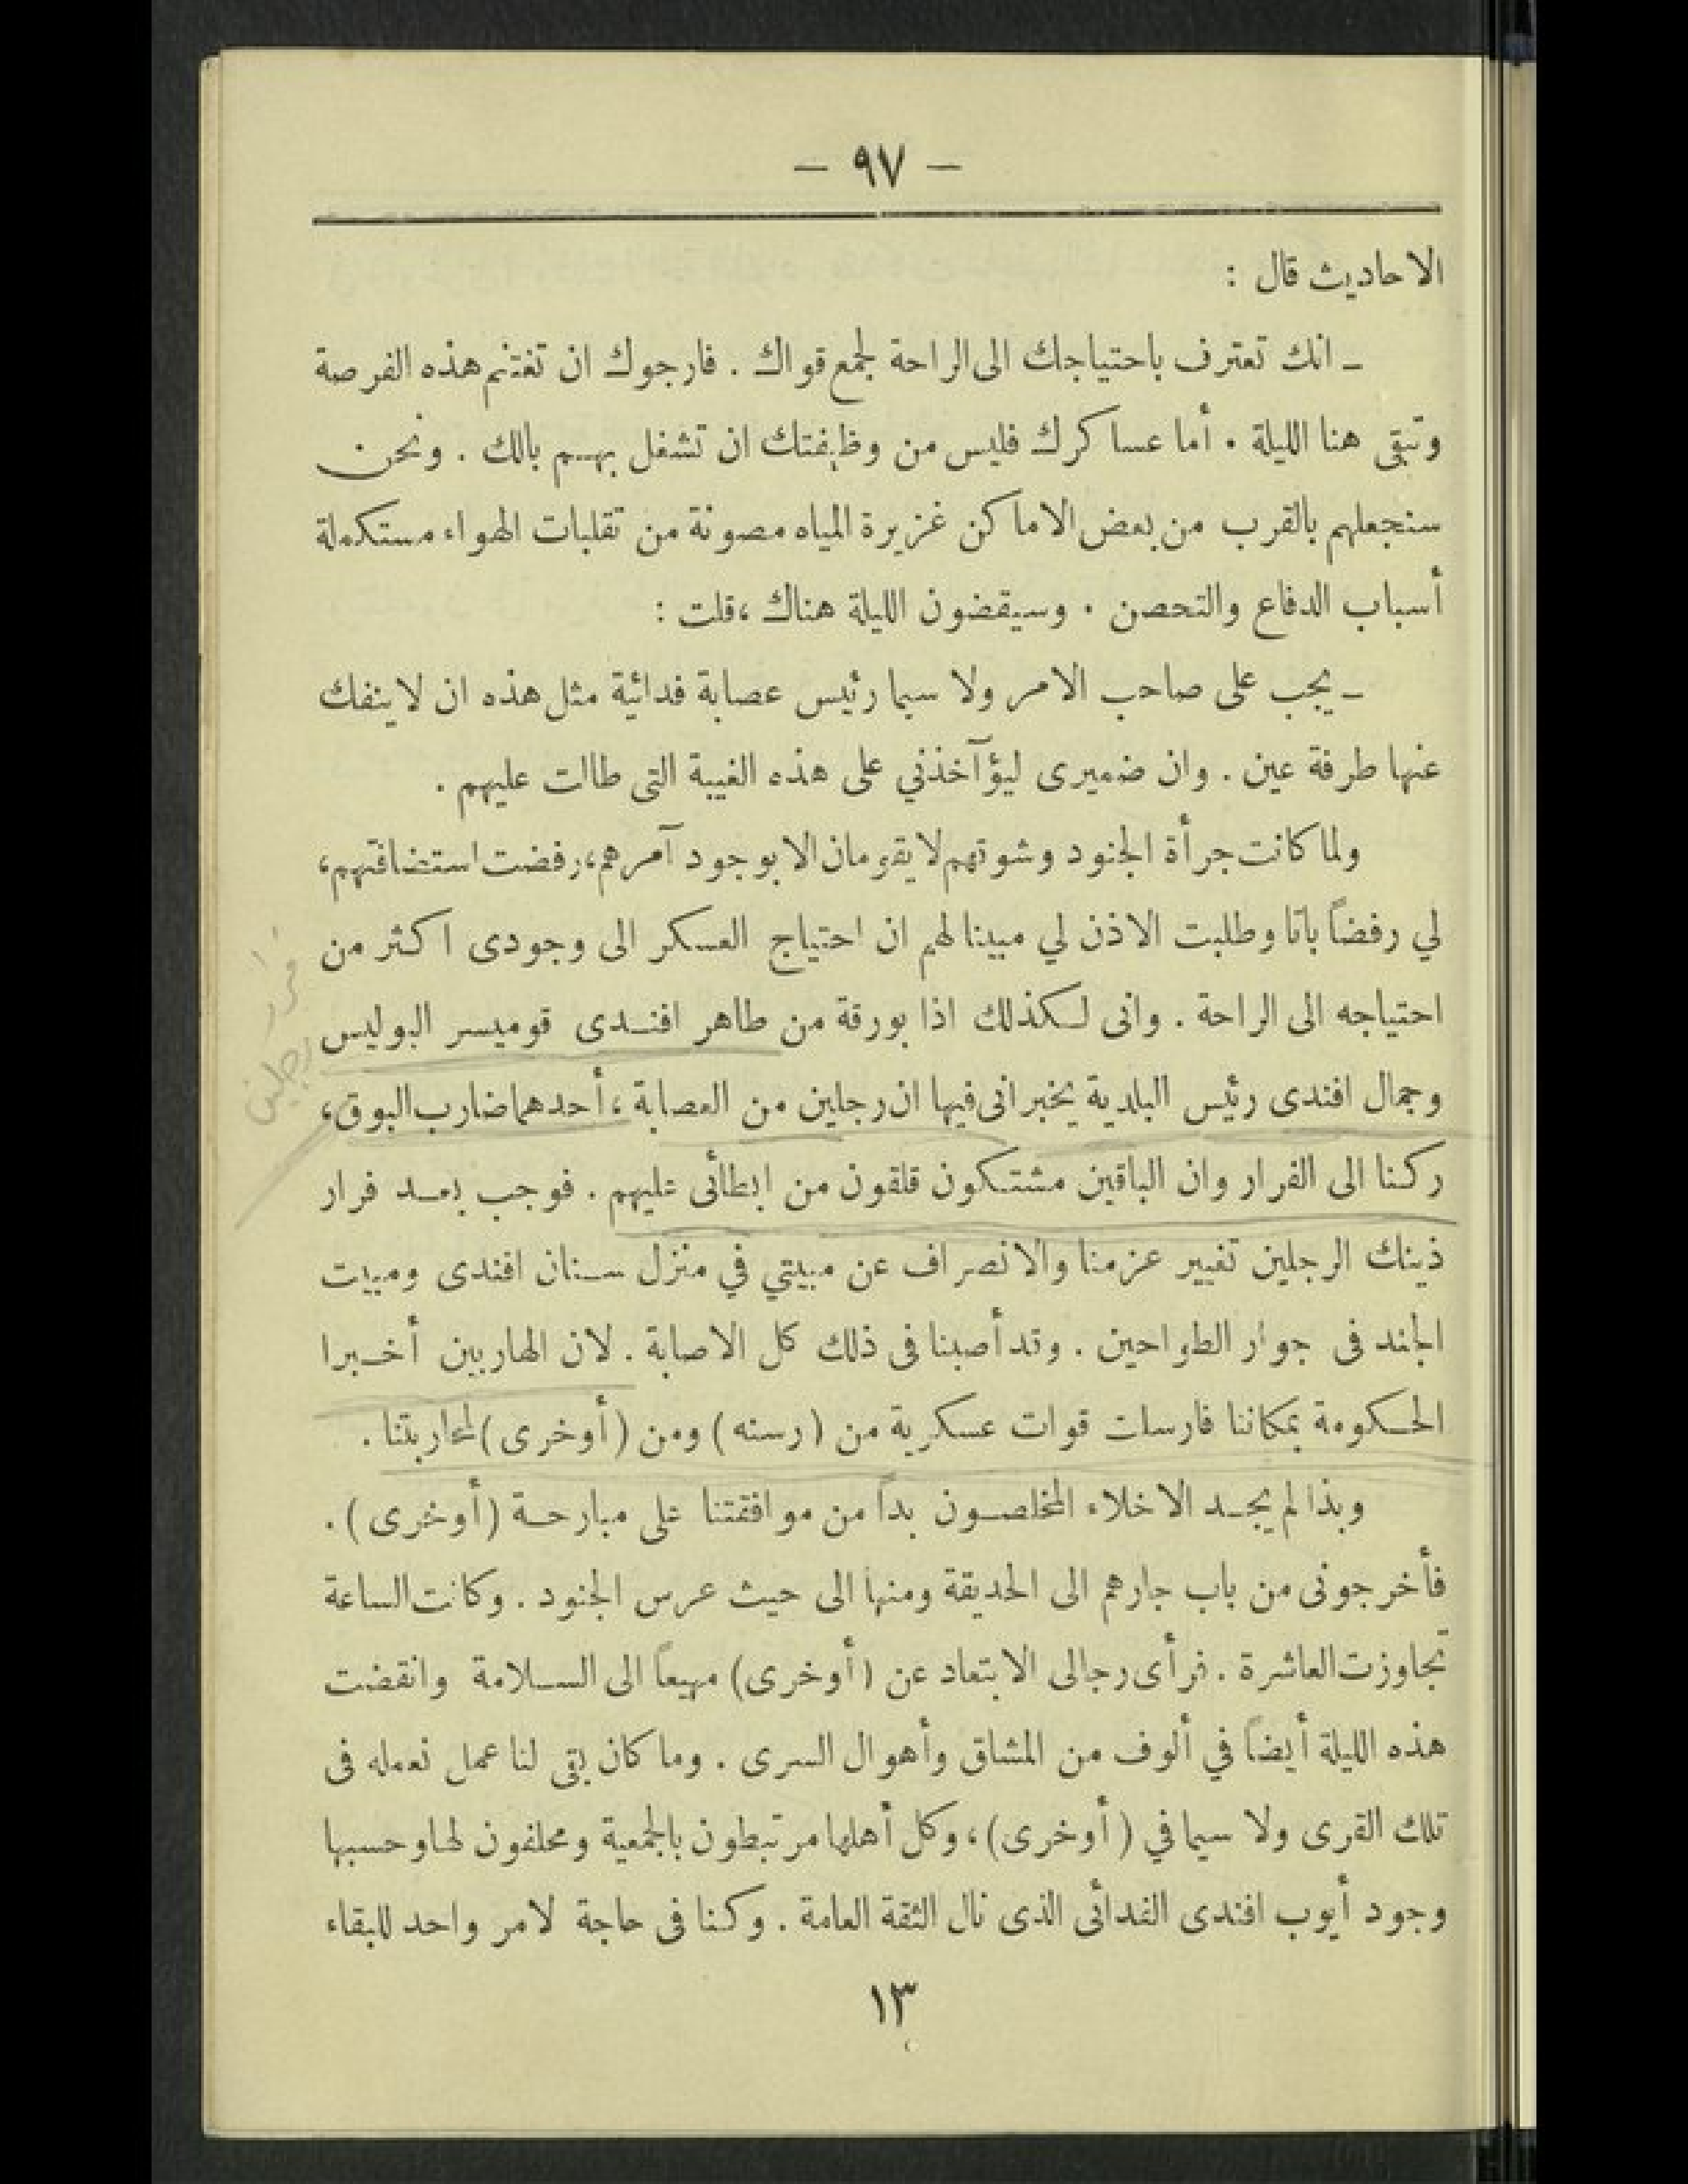 — ٩٧ —
الاحاديث قال :
ـ انك تعترف باحتياجك الى الراحة لجمع قواك . فارجوك ان تغتنم هذه الفرصة
وتبقى هنا الليلة . أما عساكرك فليس من وظيفتك ان تشغل بهم بالك . ونحن
سنجعلهم بالقرب من بعض الاماكن غزيرة المياه مصونة من تقلبات الهواء مستكملة
أسباب الدفاع والتحصن . وسيقضون الليلة هناك ، قلت :
ـ يجب على صاحب الامر ولا سيما رئيس عصابة فدائية مثل هذه ان لا ينفك
عنها طرفة عين . وان ضميرى ليؤآخذني على هذه الغيبة التى طالت عليهم .
ولما كانت جرأة الجنود وشوتهم لا يقومان الا بوجود آمرهم ، رفضت استضافتهم ،
لي رفضاً باتا وطلبت الاذن لي مبينا لهم ان احتياج العسكر الى وجودى اكثر من
احتياجه الى الراحة . وانى لكذلك اذا بورقة من طاهر افندى قوميسر البوليس
وجمال افندى رئيس البلدية يخبرانى فيها ان رجلين من العصابة ، أحدهما ضارب البوق ،
ركنا الى الفرار وان الباقين مشتكون قلقون من ابطائى عليهم . فوجب بعد فرار
ذينك الرجلين تغيير عزمنا والانصراف عن مبيتي في منزل سنان افندى ومبيت
الجند فى جوار الطواحين . وقد أصبنا فى ذلك كل الاصابة . لان الهاربين أخبرا
الحكومة بمكاننا فارسلت قوات عسكرية من (رسنه) ومن (أوخرى) لمحاربتنا .
وبذا لم يجد الاخلاء المخلصون بداً من موافقتنا على مبارحة (أوخرى) .
فأخرجونى من باب جارهم الى الحديقة ومنها الى حيث عرس الجنود . وكانت الساعة
تجاوزت العاشرة . فرأى رجالى الابتعاد عن (أوخرى) مهيعاً الى السلامة وانقضت
هذه الليلة أيضاً في ألوف من المشاق وأهوال السرى . وما كان بقى لنا عمل نعمله فى
تلك القرى ولا سيما في (أوخرى) ، وكل أهلها مرتبطون بالجمعية ومحلفون لها وحسبها
وجود أيوب افندى الفدائى الذى نال الثقة العامة . وكنا فى حاجة لامر واحد للبقاء
١٣
فرار
رجلين